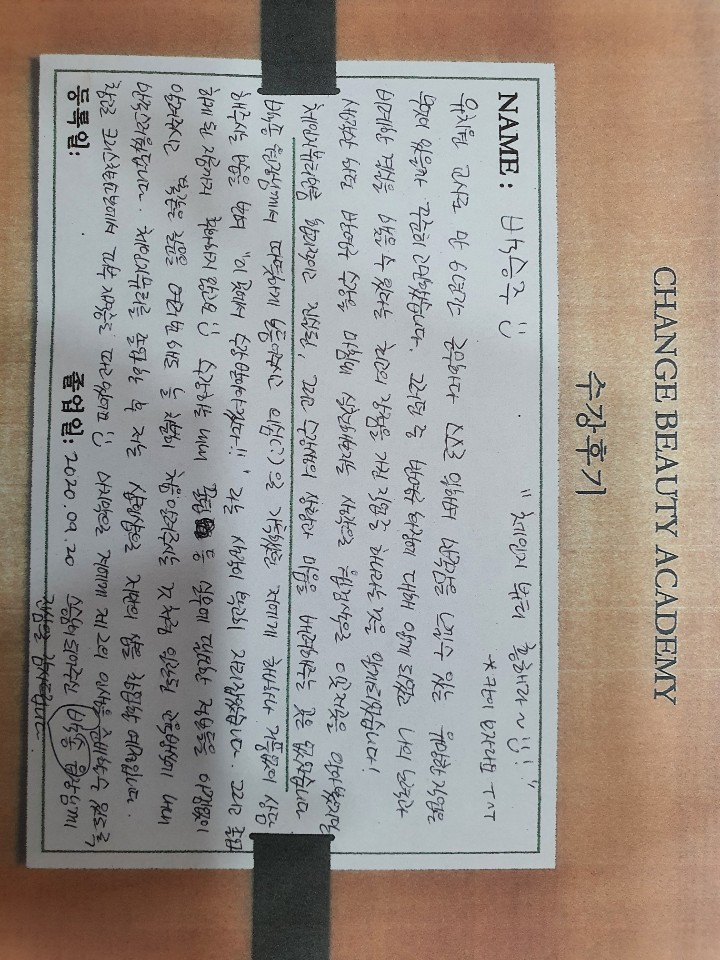 CHANGE BEAUTY ACADEMY
수강후기
NAME : 박승주 "체인지 뷰티 흥해라~!"
*칸이 모자라요 ㅜㅅㅜ
유치원 교사로 만 6년간 근무하다 스스로 일하며 만족감을 느낄수 있는 유망한 직업은
무엇이 있을까 꾸준히 고민했습니다. 그러던 중 반영구 화장에 대해 알게 되었고 나의 노력과
비례한 결실을 맺을 수 있다는 최고의 장점을 가진 직업중 하나라는 것을 알게되었습니다!
생각만 하던 반영구 수강을 마침내 실천해보자는 생각으로 웹검색으로 이곳저곳을 알아봤지만
체인지뷰티만큼 합리적이고 진실된, 그리고 수강생의 상황과 마음을 배려해주는 곳은 없었습니다
원장님께서 따뜻하게 맞이해주시고 의심(?)으로 가득했던 저에게 하나하나 거품없이 상담
해주시는 모습을 보며 "이 곳에서 수강 받아야겠다!!" 라는 생각이 확고히 자리잡았습니다. 그리고 졸업
하게 된 지금까지 후회하지 않고요 수강하는 내내 꿀팁 등 실무에 필요한 정보들을 아낌없이
알려주시고 똑같은 질문을 여러번 해도 늘 차분히 처음 알려주시는 것처럼 일관된 교육방식에 내내
만족스러웠답니다. 체인지뷰티를 졸업한 후 저는 샵인샵으로 저만의 샵을 창업할 예정입니다.
참고로 크리스찬쇼보에서 피부 자격증도 따고있어요 마지막으로 저에게 제 2의 인생을 준비할 수 있도록
등록일: 졸업일: 2020.09.20 스승님이 되어주신 원장님께
진심으로 감사드립니다.